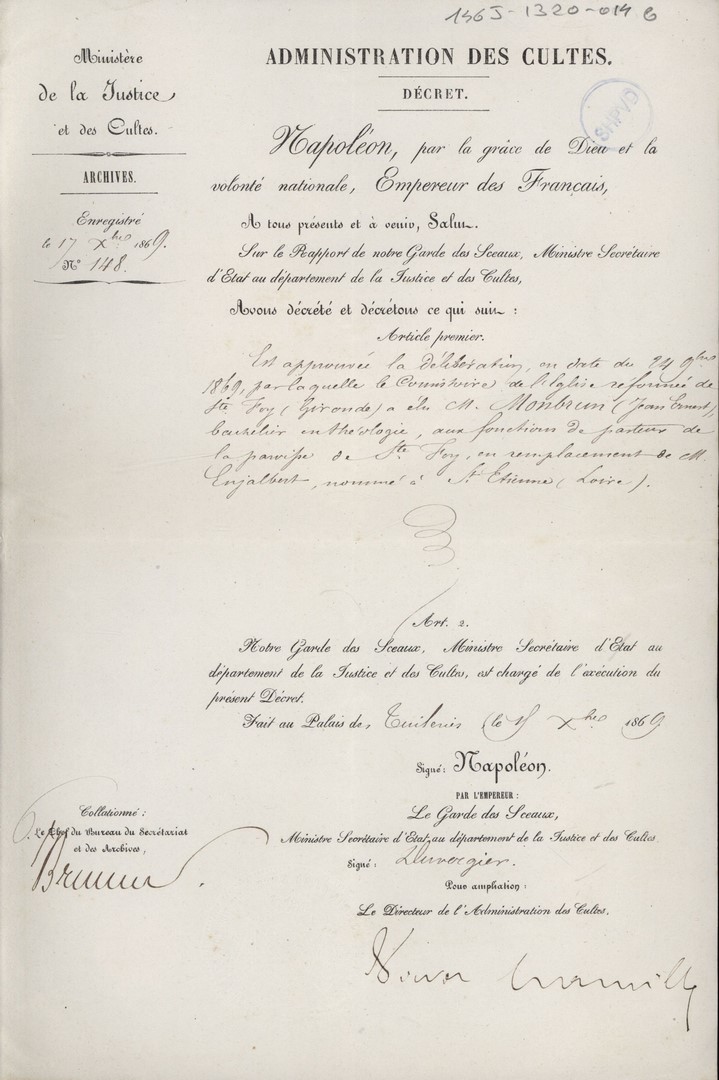 146J-1320-014 6
SHPVD
Ministère
de la Justice
et des Cultes.
ARCHIVES.
Enregistré
le 17 Xbre 1869.
N° 148.
ADMINISTRATION DES CULTES.
DÉCRET.
Napoléon, par la grâce de Dieu et la
volonté nationale, Empereur des Français,
A tous présents et à venir, Salut.
Sur le Rapport de notre Garde des Sceaux, Ministre Secrétaire
d'Etat au département de la Justice et des Cultes,
Avons décrété et décrétons ce qui suit :
Article premier.
Est approuvée la délibération, en date du 24 9bre
1869, par laquelle le Consistoire de l'Eglise réformée de
Ste Foy (Gironde) a élu M. Monbrun (Jean Ernest),
bachelier en théologie, aux fonctions de pasteur de
la paroisse de Ste Foy, en remplacement de M.
Enjalbert, nommé à St Etienne (Loire).
Art. 2.
Notre Garde des Sceaux, Ministre Secrétaire d'Etat au
département de la Justice et des Cultes, est chargé de l'exécution du
présent Décret.
Fait au Palais des Tuileries le 15 Xbre 1869
Signé: Napoléon.
PAR L'EMPEREUR :
Le Garde des Sceaux,
Ministre Secrétaire d'Etat au département de la Justice et des Cultes
Signé : Duvergier.
Pour ampliation :
Le Directeur de l'Administration des Cultes.
Collationné :
Le Chef du Bureau du Secrétariat
et des Archives,